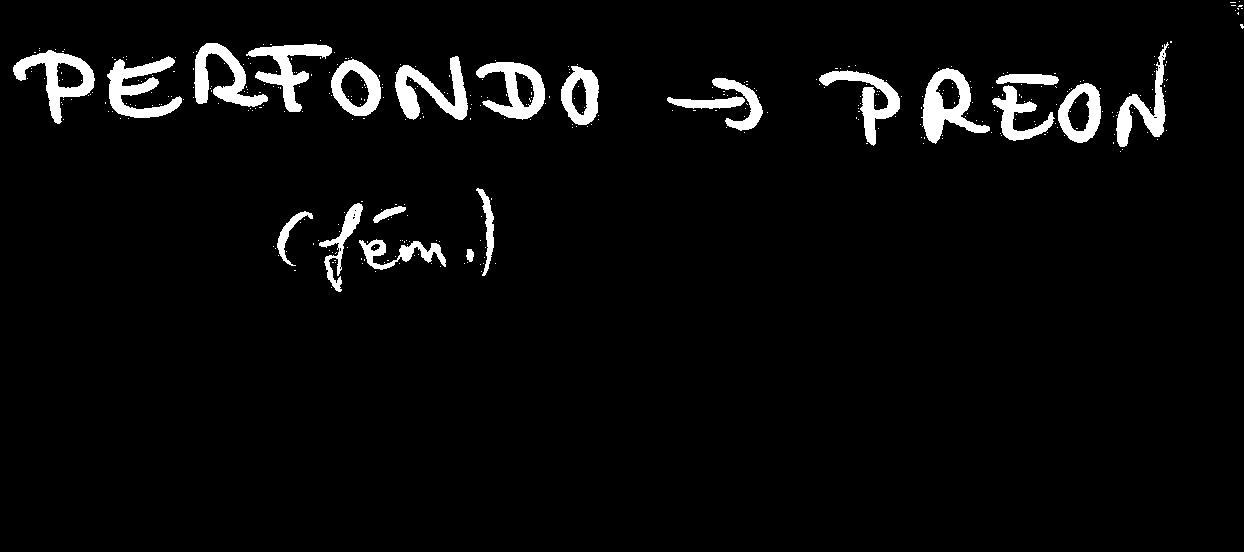 PERFONDO → PREON
(fém.)